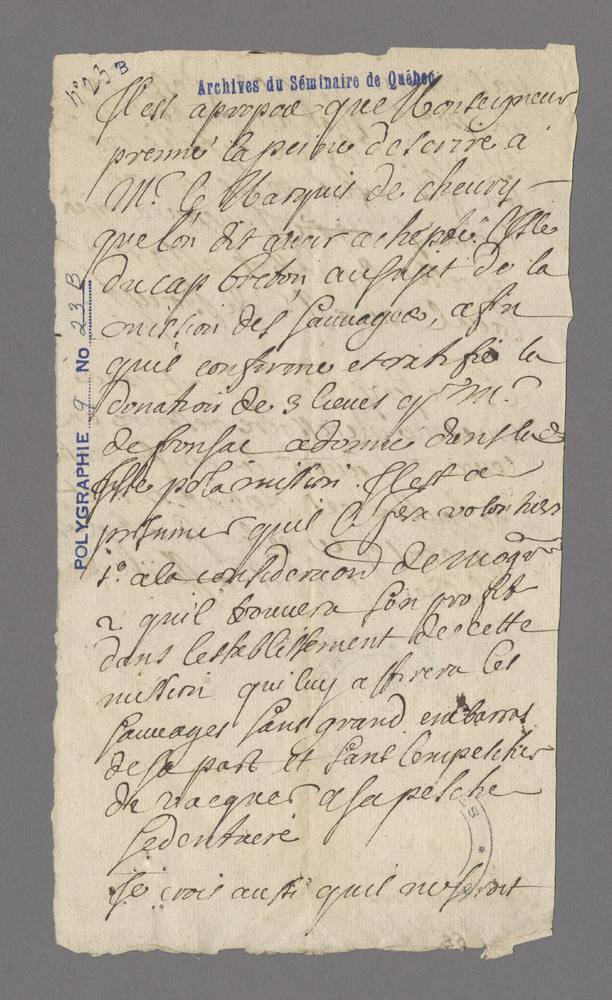 n° 23 B
Archives du Séminaire de Québec
POLYGRAPHIE 9 No 23 B
Il est apropos que Monseigneur
prenne la peine descrire a
Mr. le Marquis de chevry
que lon dit avoir achepté l'Isle
du cap breton au sujet de la
mission des sauvages, afin
quil confirme et ratifie la
donation de 3 lieues q Mr.
de fonsac a donné dans lad
Isle po la mission. Il est a
presumer quil le fera volontiers
1° a la consideraon de Mongr
2 quil trouvera son profit
dans lestablissement de cette
mission qui luy attirera les
sauvages sans grand embarras
de sa part et sans lempescher
de vacquer a sa pesche
sedentaire
Je crois aussi quil